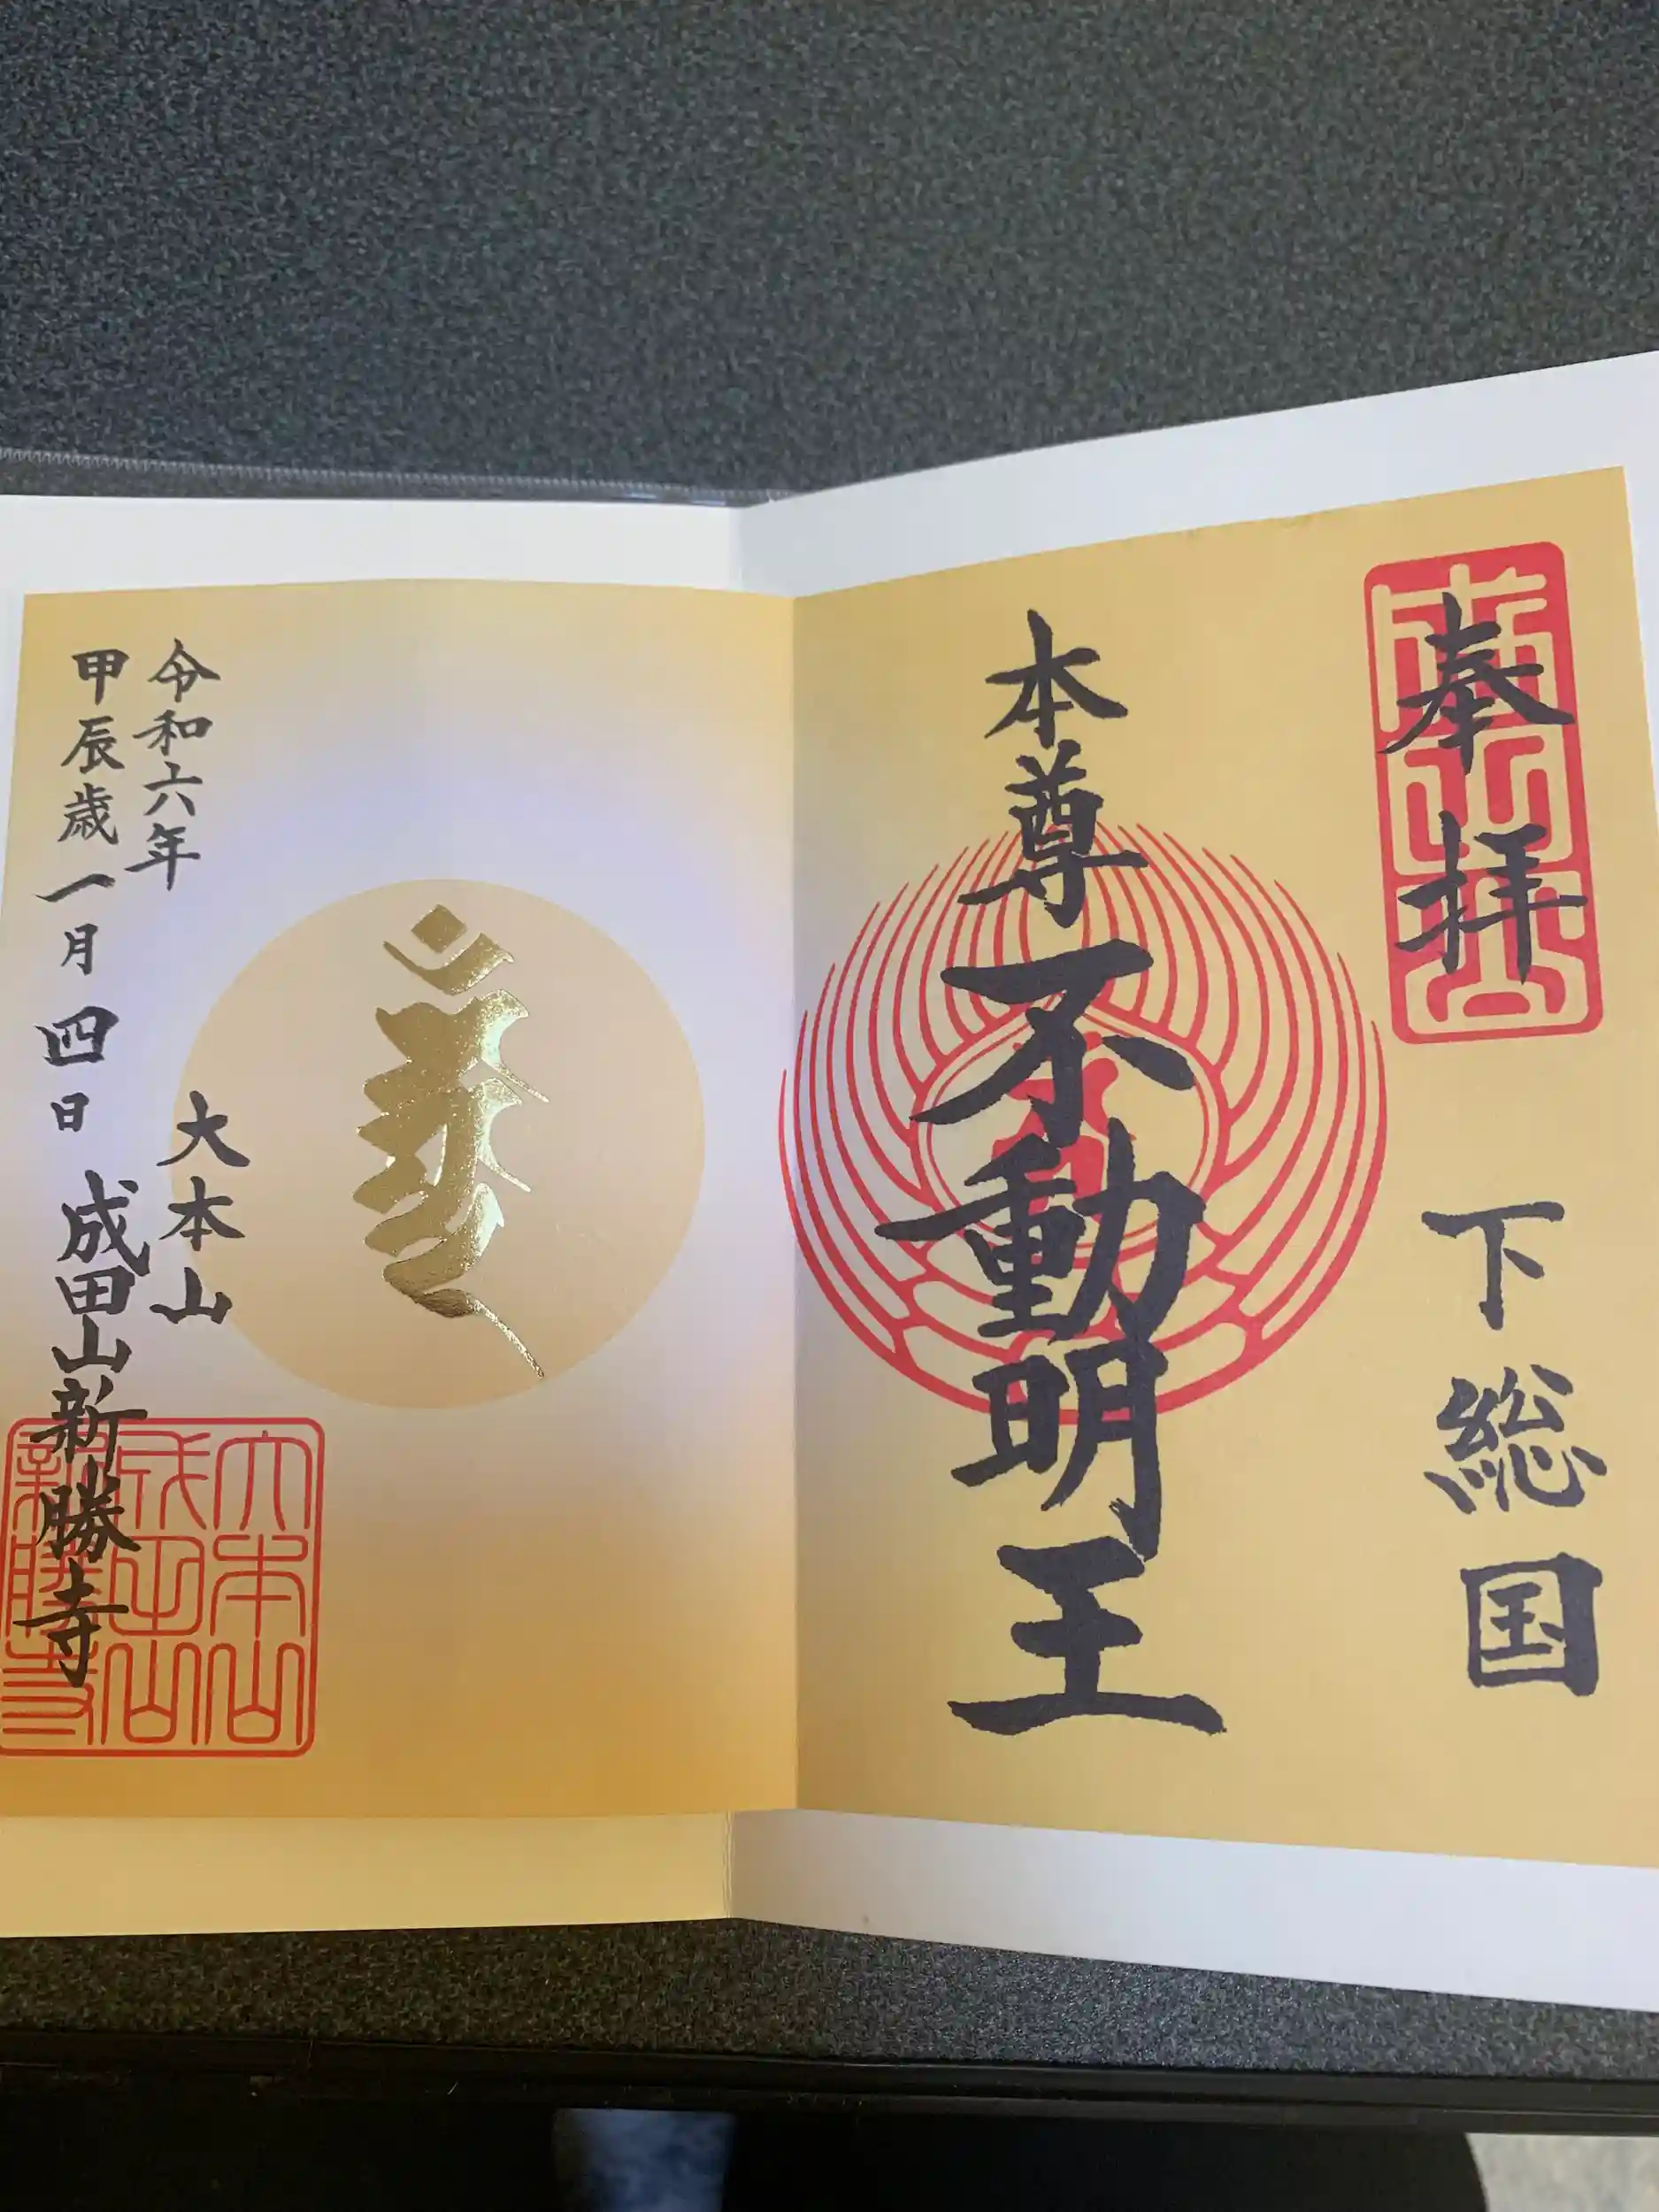 奉拝
下総国
本尊不動明王
令和六年
甲辰歳一月四日
大本山
成田山新勝寺
大本山
成田山
新勝寺